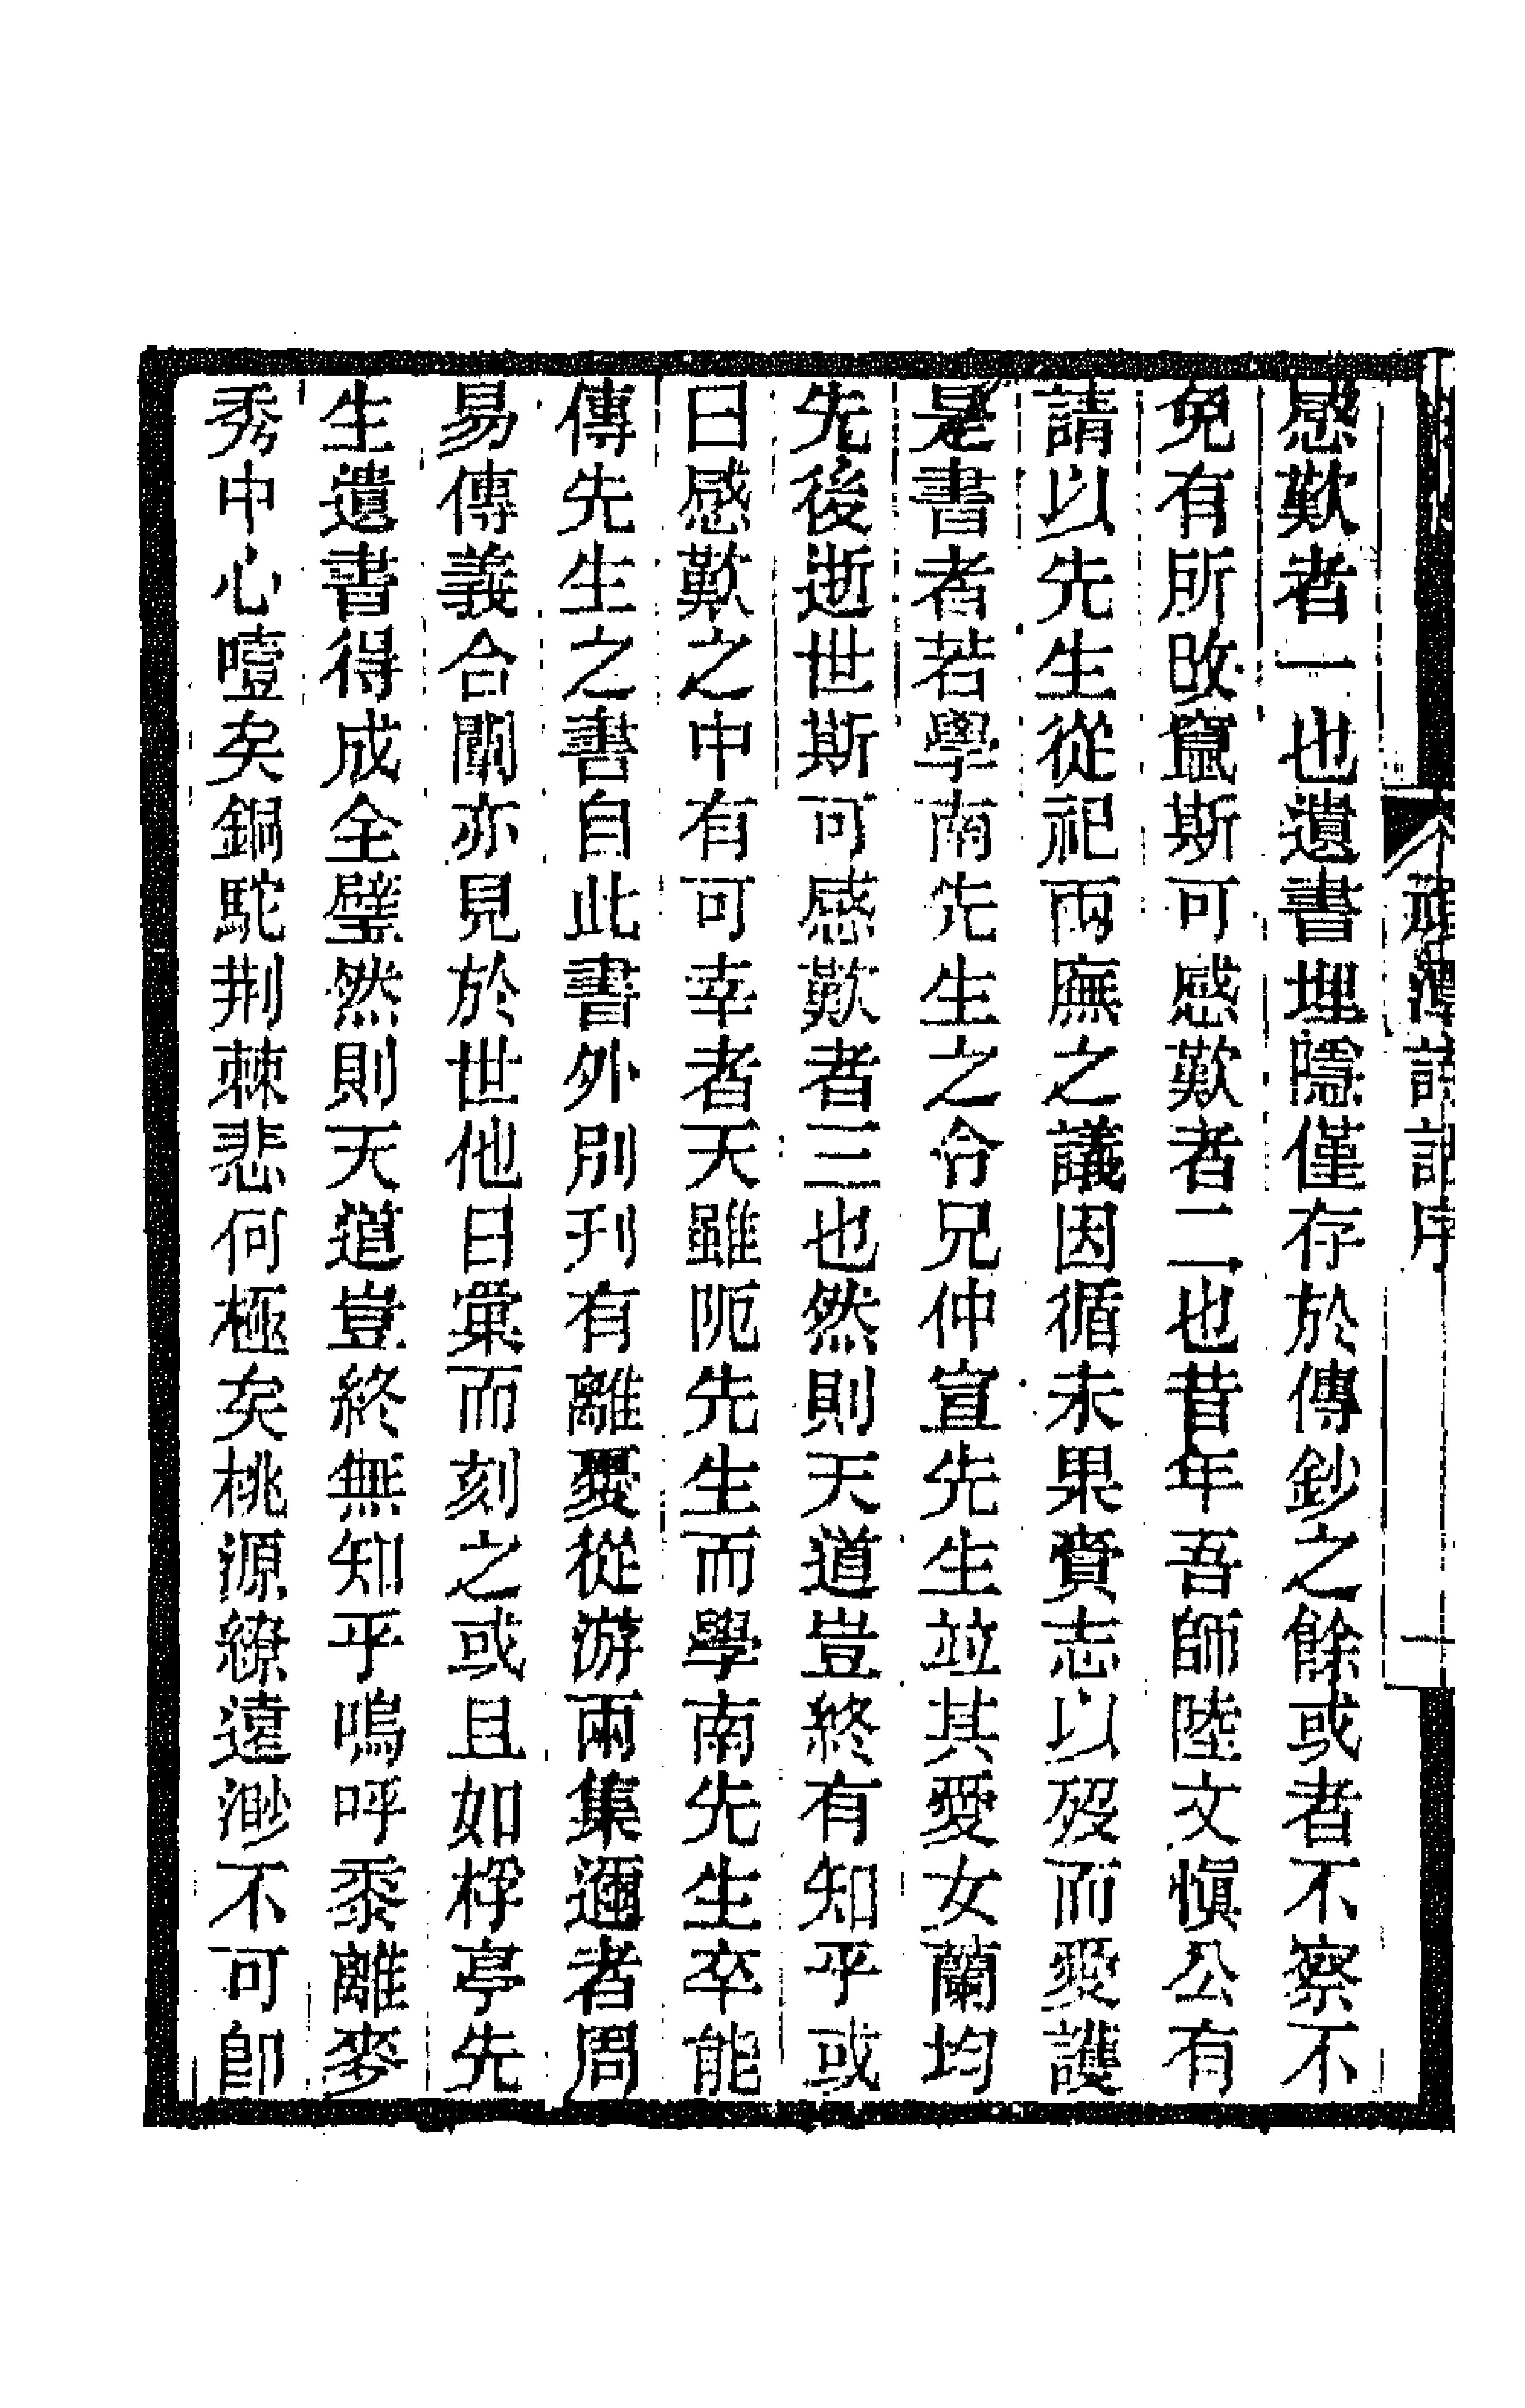 潭詩話序
一
感歎者一也遺書埋隱僅存於傳鈔之餘或者不察不
免有所改竄斯可感歎者二也昔年吾師陸文愼公有
請以先生從祀兩廡之議因循未果賫志以歿而愛護
是書者若學南先生之令兄仲宣先生竝其愛女蘭均
先後逝世斯可感歎者三也然則天道豈終有知乎或
曰感歎之中有可幸者天雖阨先生而學南先生卒能
傳先生之書自此書外別刋有離憂從游兩集邇者周
易傳義合闡亦見於世他日彙而刻之或且如桴亭先
生遺書得成全璧然則天道豈終無知乎嗚呼黍離麥
秀中心噎矣銅駝荆棘悲何極矣桃源繚遠渺不可卽